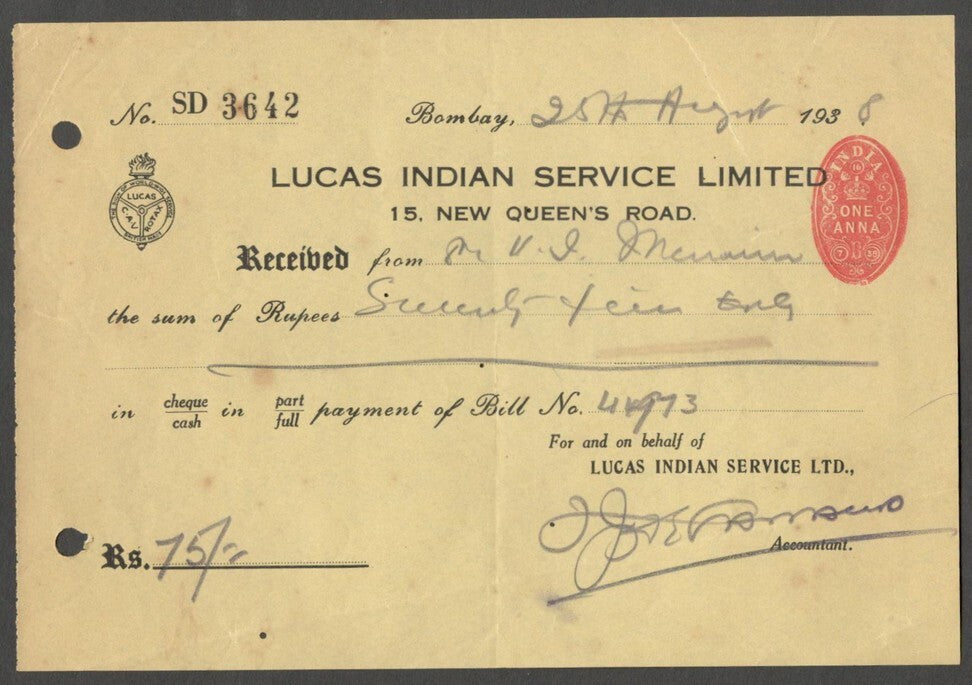 No. SD 3642 Bombay, 25th August 1938
LUCAS INDIAN SERVICE LIMITED
15, NEW QUEEN'S ROAD.
THE SIGN OF WORLDWIDE SERVICE
LUCAS
C.A.V. ROTAX
BRITISH MADE
INDIA
16
ONE
ANNA
7 38
Received from V. I.
the sum of Rupees Seventy five only
in cheque/cash in part/full payment of Bill No.
For and on behalf of
LUCAS INDIAN SERVICE LTD.,
Accountant.
Rs. 75/-